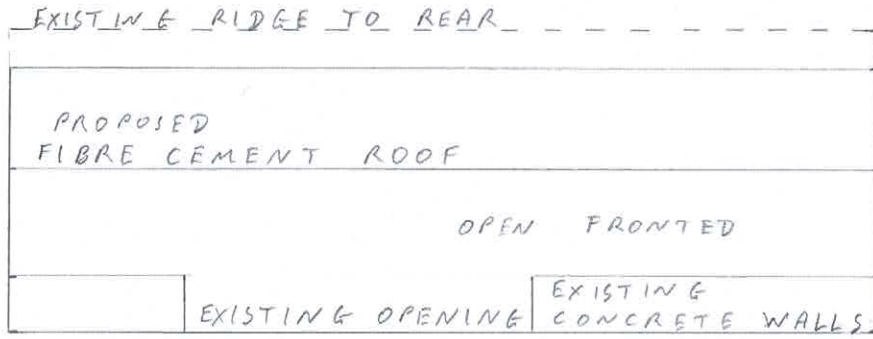 EXISTING RIDGE TO REAR
PROPOSED
FIBRE CEMENT ROOF
OPEN FRONTED
EXISTING OPENING
EXISTING
CONCRETE WALLS